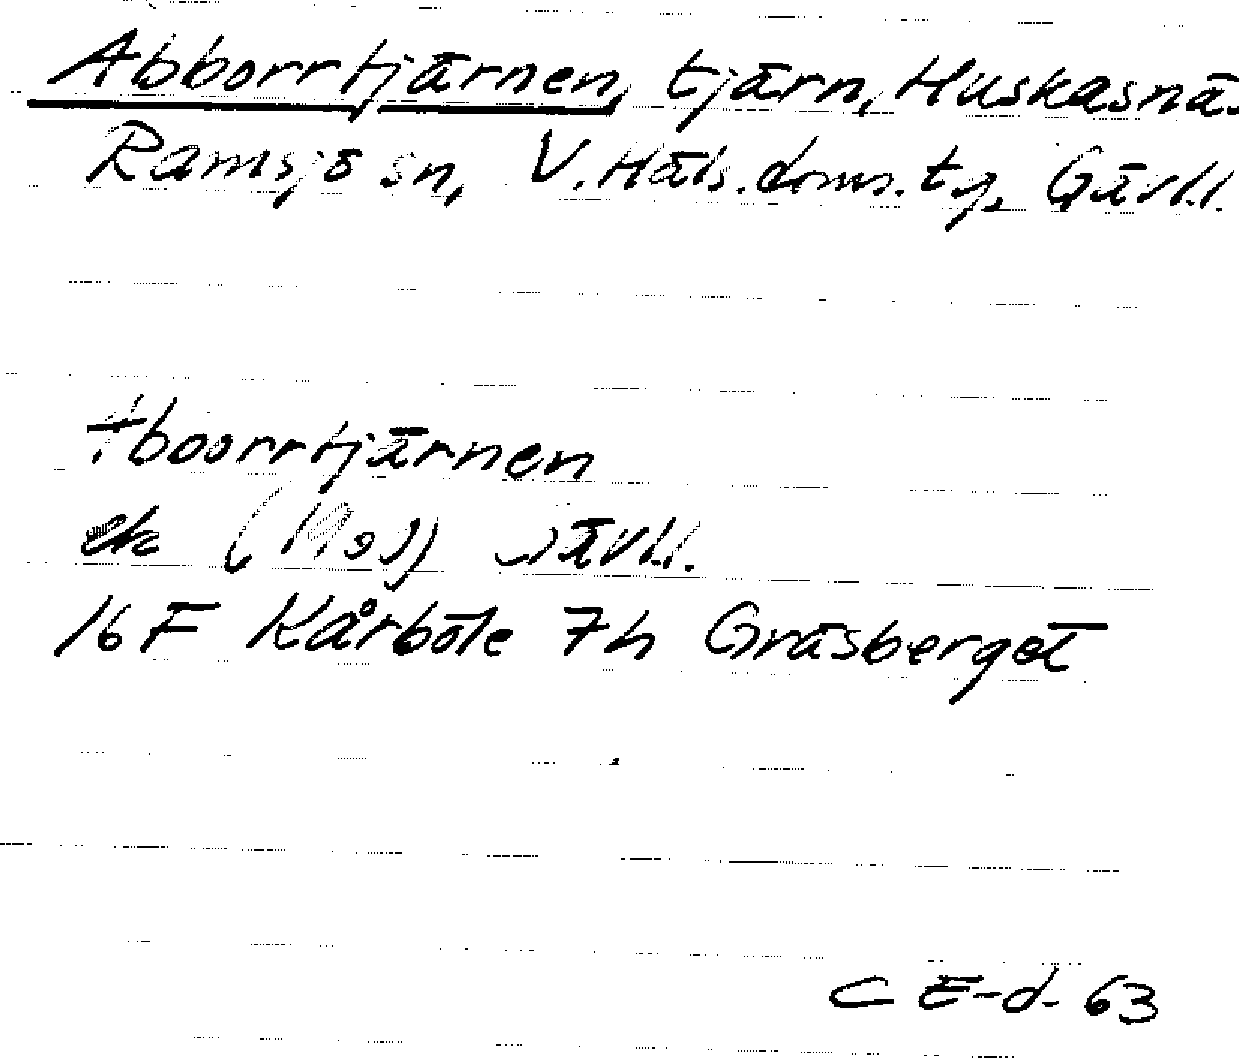 Abborrtjärnen, tjärn, Huskasnäs
Ramsjö sn, V. Häls. doms. tg, Gävl.l.
Abborrtjärnen
ek Gävl.l.
16 F Kårböle 7h Gräsberget
C E-d- 63